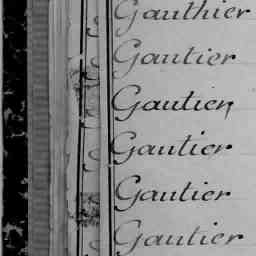 Gauthier
Gautier
Gautier
Gautier
Gautier
Gautier